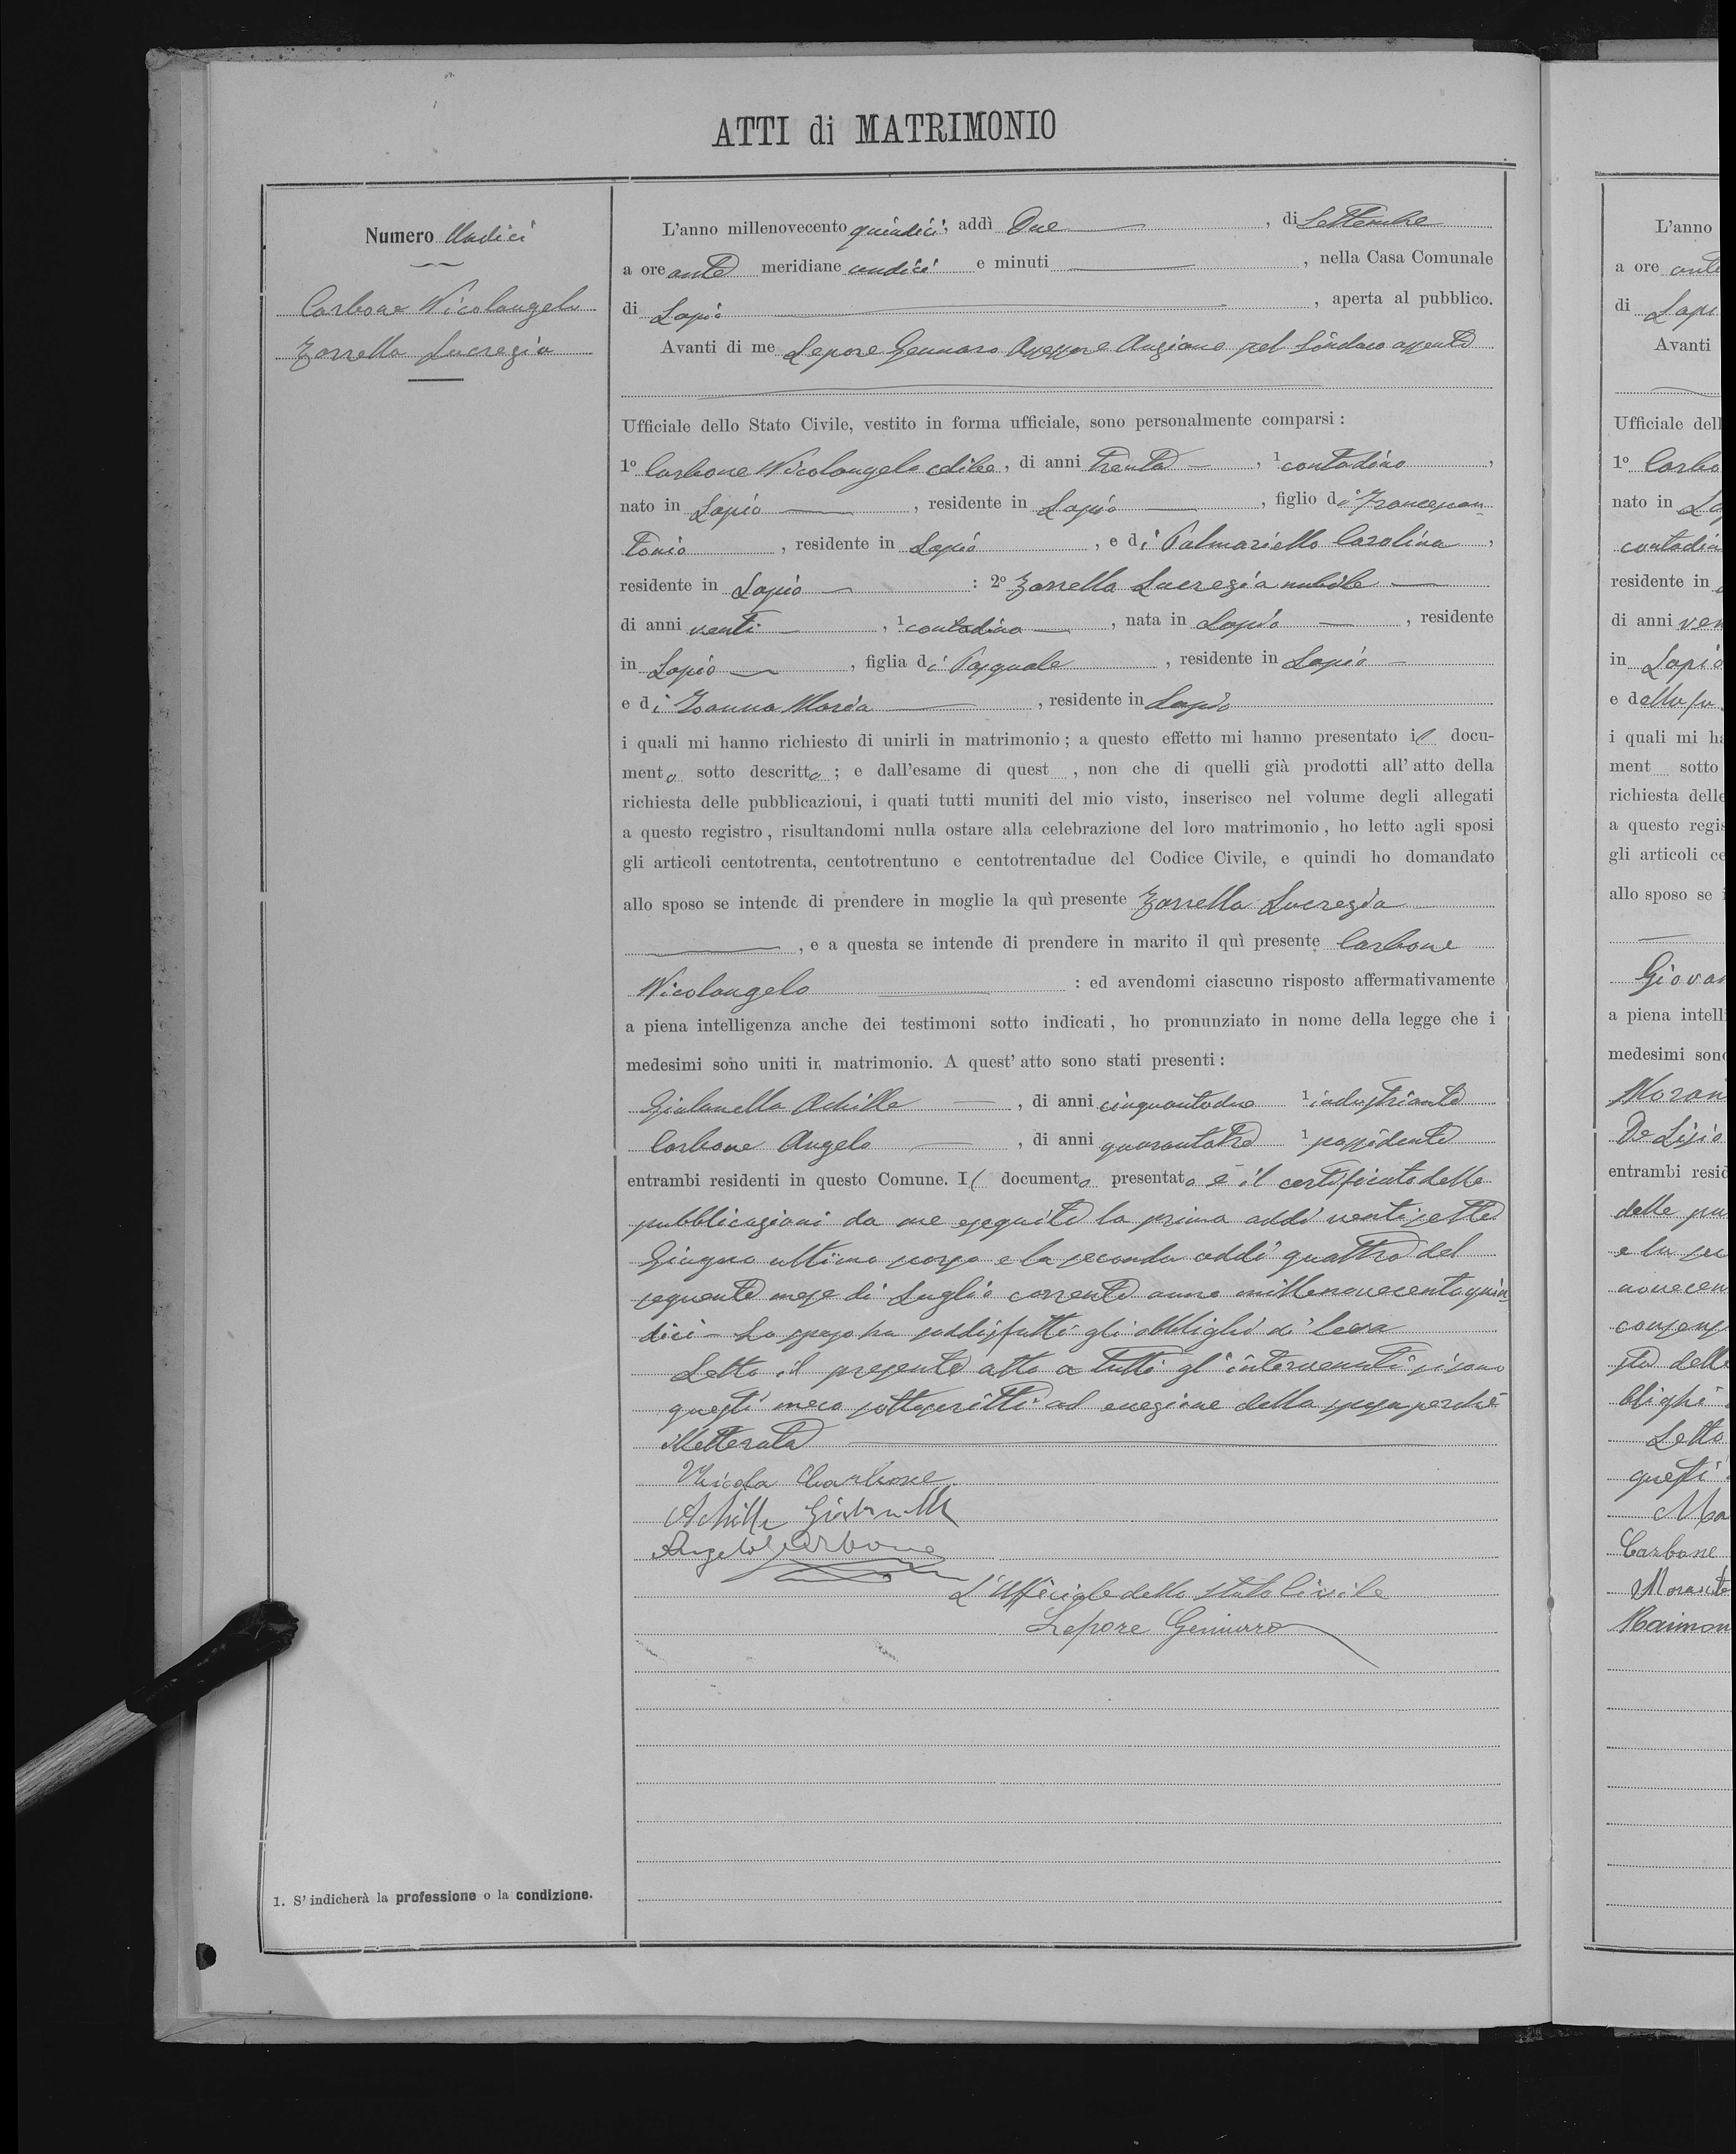 ATTI di MATRIMONIO
Numero Undici
Carbone Nicolangelo
Zarrella Lucrezia
1. S' indicherà la professione o la condizione.
L'anno millenovecento quindici, addì Due, di Settembre
a ore ante meridiane undici e minuti , nella Casa Comunale
di Lapio , aperta al pubblico.
Avanti di me Lepore Gennaro Assessore Anziano pel Sindaco assente
Ufficiale dello Stato Civile, vestito in forma ufficiale, sono personalmente comparsi :
1º Carbone Nicolangelo celibe, di anni trenta , 1 contadino ,
nato in Lapio , residente in Lapio , figlio di Francescan-
tonio , residente in Lapio , e di Palmariello Carolina ,
residente in Lapio : 2º Zarrella Lucrezia nubile
di anni venti , 1 contadina , nata in Lapio , residente
in Lapio , figlia di Pasquale , residente in Lapio
e di Maria , residente in Lapio
i quali mi hanno richiesto di unirli in matrimonio ; a questo effetto mi hanno presentato il docu-
mento sotto descritto ; e dall'esame di quest , non che di quelli già prodotti all' atto della
richiesta delle pubblicazioni, i quati tutti muniti del mio visto, inserisco nel volume degli allegati
a questo registro , risultandomi nulla ostare alla celebrazione del loro matrimonio , ho letto agli sposi
gli articoli centotrenta, centotrentuno e centotrentadue del Codice Civile, e quindi ho domandato
allo sposo se intende di prendere in moglie la quì presente Zarrella Lucrezia
, e a questa se intende di prendere in marito il quì presente Carbone
Nicolangelo : ed avendomi ciascuno risposto affermativamente
a piena intelligenza anche dei testimoni sotto indicati , ho pronunziato in nome della legge che i
medesimi sono uniti in matrimonio. A quest' atto sono stati presenti :
Gialanella Achille , di anni cinquantadue 1 industriante
Carbone Angelo , di anni quarantatre 1 possidente
entrambi residenti in questo Comune. Il documento presentato è il certificato delle
pubblicazioni da me eseguite la prima addì ventisette
Giugno ultimo scorso e la seconda addì quattro del
seguente mese di Luglio corrente anno millenovecentoquin-
dici - Lo sposo ha soddisfatti gli obblighi di leva
Letto il presente atto a tutti gl'intervenuti si sono
questi meco sottoscritti ad enezione della sposa perchè
illetterata
Nicola Carbone
Achille Gialanella
Angelo Carbone
L'Ufficiale dello Stato Civile
Lepore Gennaro
L'anno
a ore ante
di Lapi
Avanti
Ufficiale dell
1º Carbo
nato in La
contadin
residente in
di anni ven
in Lapio
e della fu
i quali mi ha
ment sotto
richiesta delle
a questo regis
gli articoli ce
allo sposo se i
Giovan
a piena intelli
medesimi sono
Moran
De Lisio
entrambi resid
delle pu
e la sec
novecen
consens
sta delle
blighi
Letto
questi
Mo
Carbone
Morante
Raimon